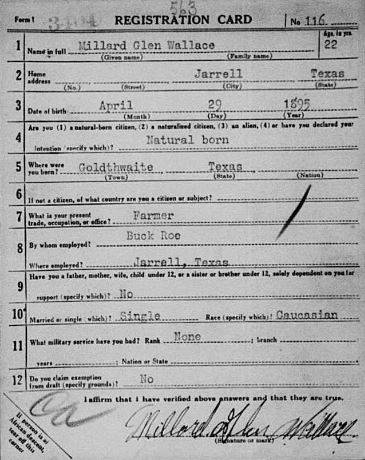 563
Form 1 REGISTRATION CARD No 116
1 Name in full Millard Glen Wallace Age, in yrs. 22
(Given name) (Family name)
2 Home address Jarrell Texas
(No.) (Street) (City) (State)
3 Date of birth April 29 1895
(Month) (Day) (Year)
4 Are you (1) a natural-born citizen, (2) a naturalized citizen, (3) an alien, (4) or have you declared your
intention (specify which)? Natural born
5 Where were you born? Goldthwaite Texas
(Town) (State) (Nation)
6 If not a citizen, of what country are you a citizen or subject?
7 What is your present trade, occupation, or office? Farmer
8 By whom employed? Buck Roe
Where employed? Jarrell, Texas
9 Have you a father, mother, wife, child under 12, or a sister or brother under 12, solely dependent on you for
support (specify which)? No
10 Married or single (which)? Single Race (specify which)? Caucasian
11 What military service have you had? Rank None ; branch
years ; Nation or State
12 Do you claim exemption from draft (specify grounds)? No
I affirm that I have verified above answers and that they are true.
Millard Glen Wallace
(Signature or mark)
If person is of
African descent,
tear off this
corner